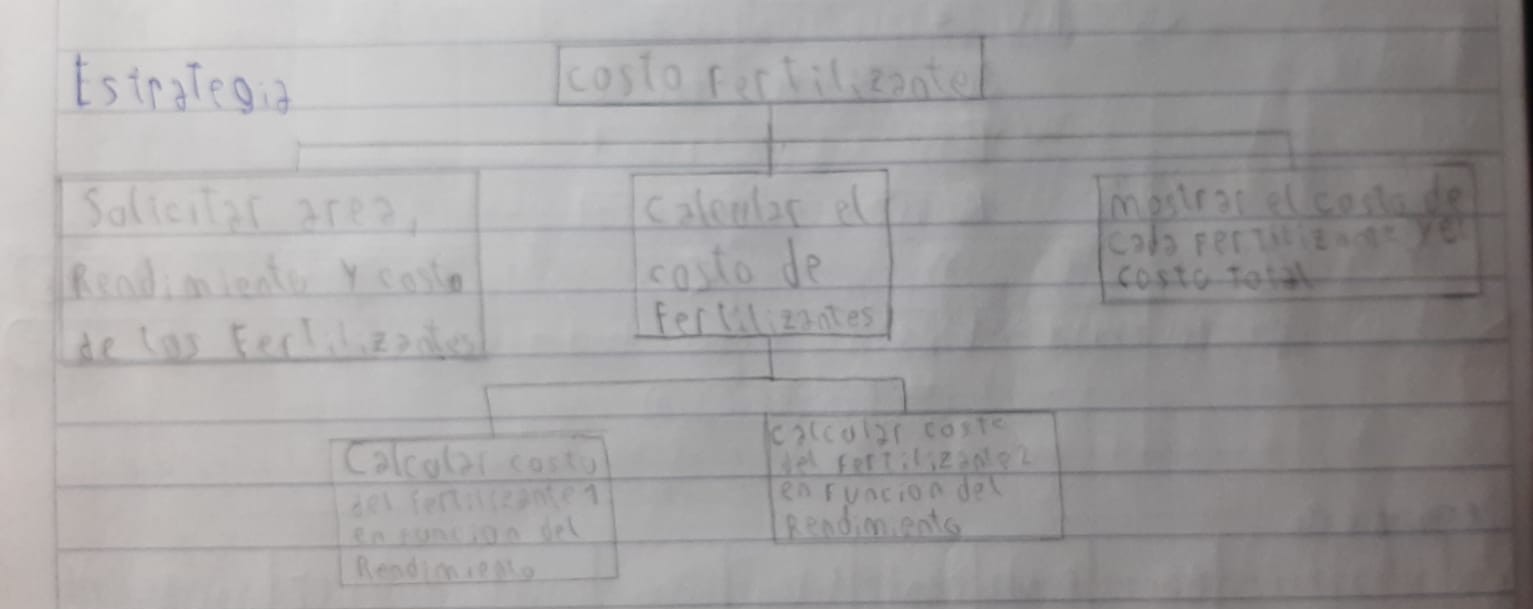 Estrategia
costo Fertilizante
Solicitar area,
Rendimiento y costo
de los Fertilizantes
calcular el
costo de
Fertilizantes
mostrar el costo de
cada Fertilizante y el
costo total
Calcular costo
del fertilizante 1
en funcion del
Rendimiento
calcular costo
del Fertilizante 2
en Funcion del
Rendimiento